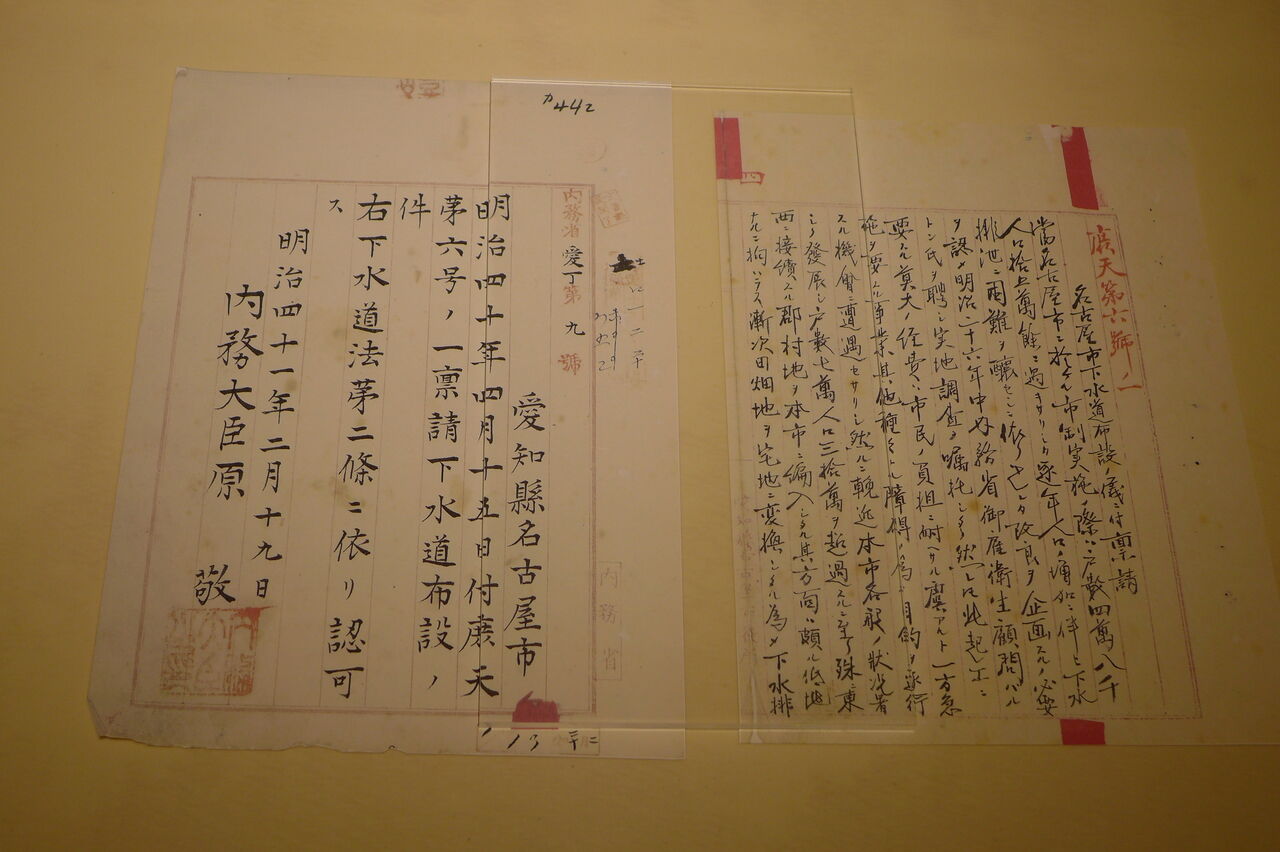 廣天第六號ノ一
名古屋市下水道布設ノ儀ニ付禀請
當名古屋市ニ於ケル市制実施ノ際ハ戸数四萬八千
人口拾五萬餘ニ過キサリシカ逐年人口ノ増加ニ伴ヒ下水
排泄ニ困難ヲ醸セシニ依リ之レカ改良ヲ企画スルノ必要
ヲ認メ明治二十六年中内務省御雇衛生顧問バル
トン氏ヲ聘シ実地調査ヲ嘱托シタリ然レトモ此起工ニ
要スル莫大ノ経費ハ市民ノ負担ニ耐ヘサル虞アルト一方急
施ヲ要スル事業其他種々ノ障碍ノ為メ目的ヲ遂行
スル機會ニ遭遇セサリシ然ルニ輓近本市各般ノ状況著
シク發展シ戸数七萬人口三拾萬ヲ超過スルニ至リ殊東
西ニ接續スル郡村地ヲ本市ニ編入シタル其方面ハ頗ル低地
ナルニ拘ハラス漸次田畑地ヲ宅地ニ変換シタル為メ下水排
四
カ442
内務省愛丁第九號
愛知縣名古屋市
明治四十年四月十五日付廣天
第六号ノ一禀請下水道布設ノ
件
右下水道法第二條ニ依リ認可
ス
明治四十一年二月十九日
内務大臣原敬
内務省